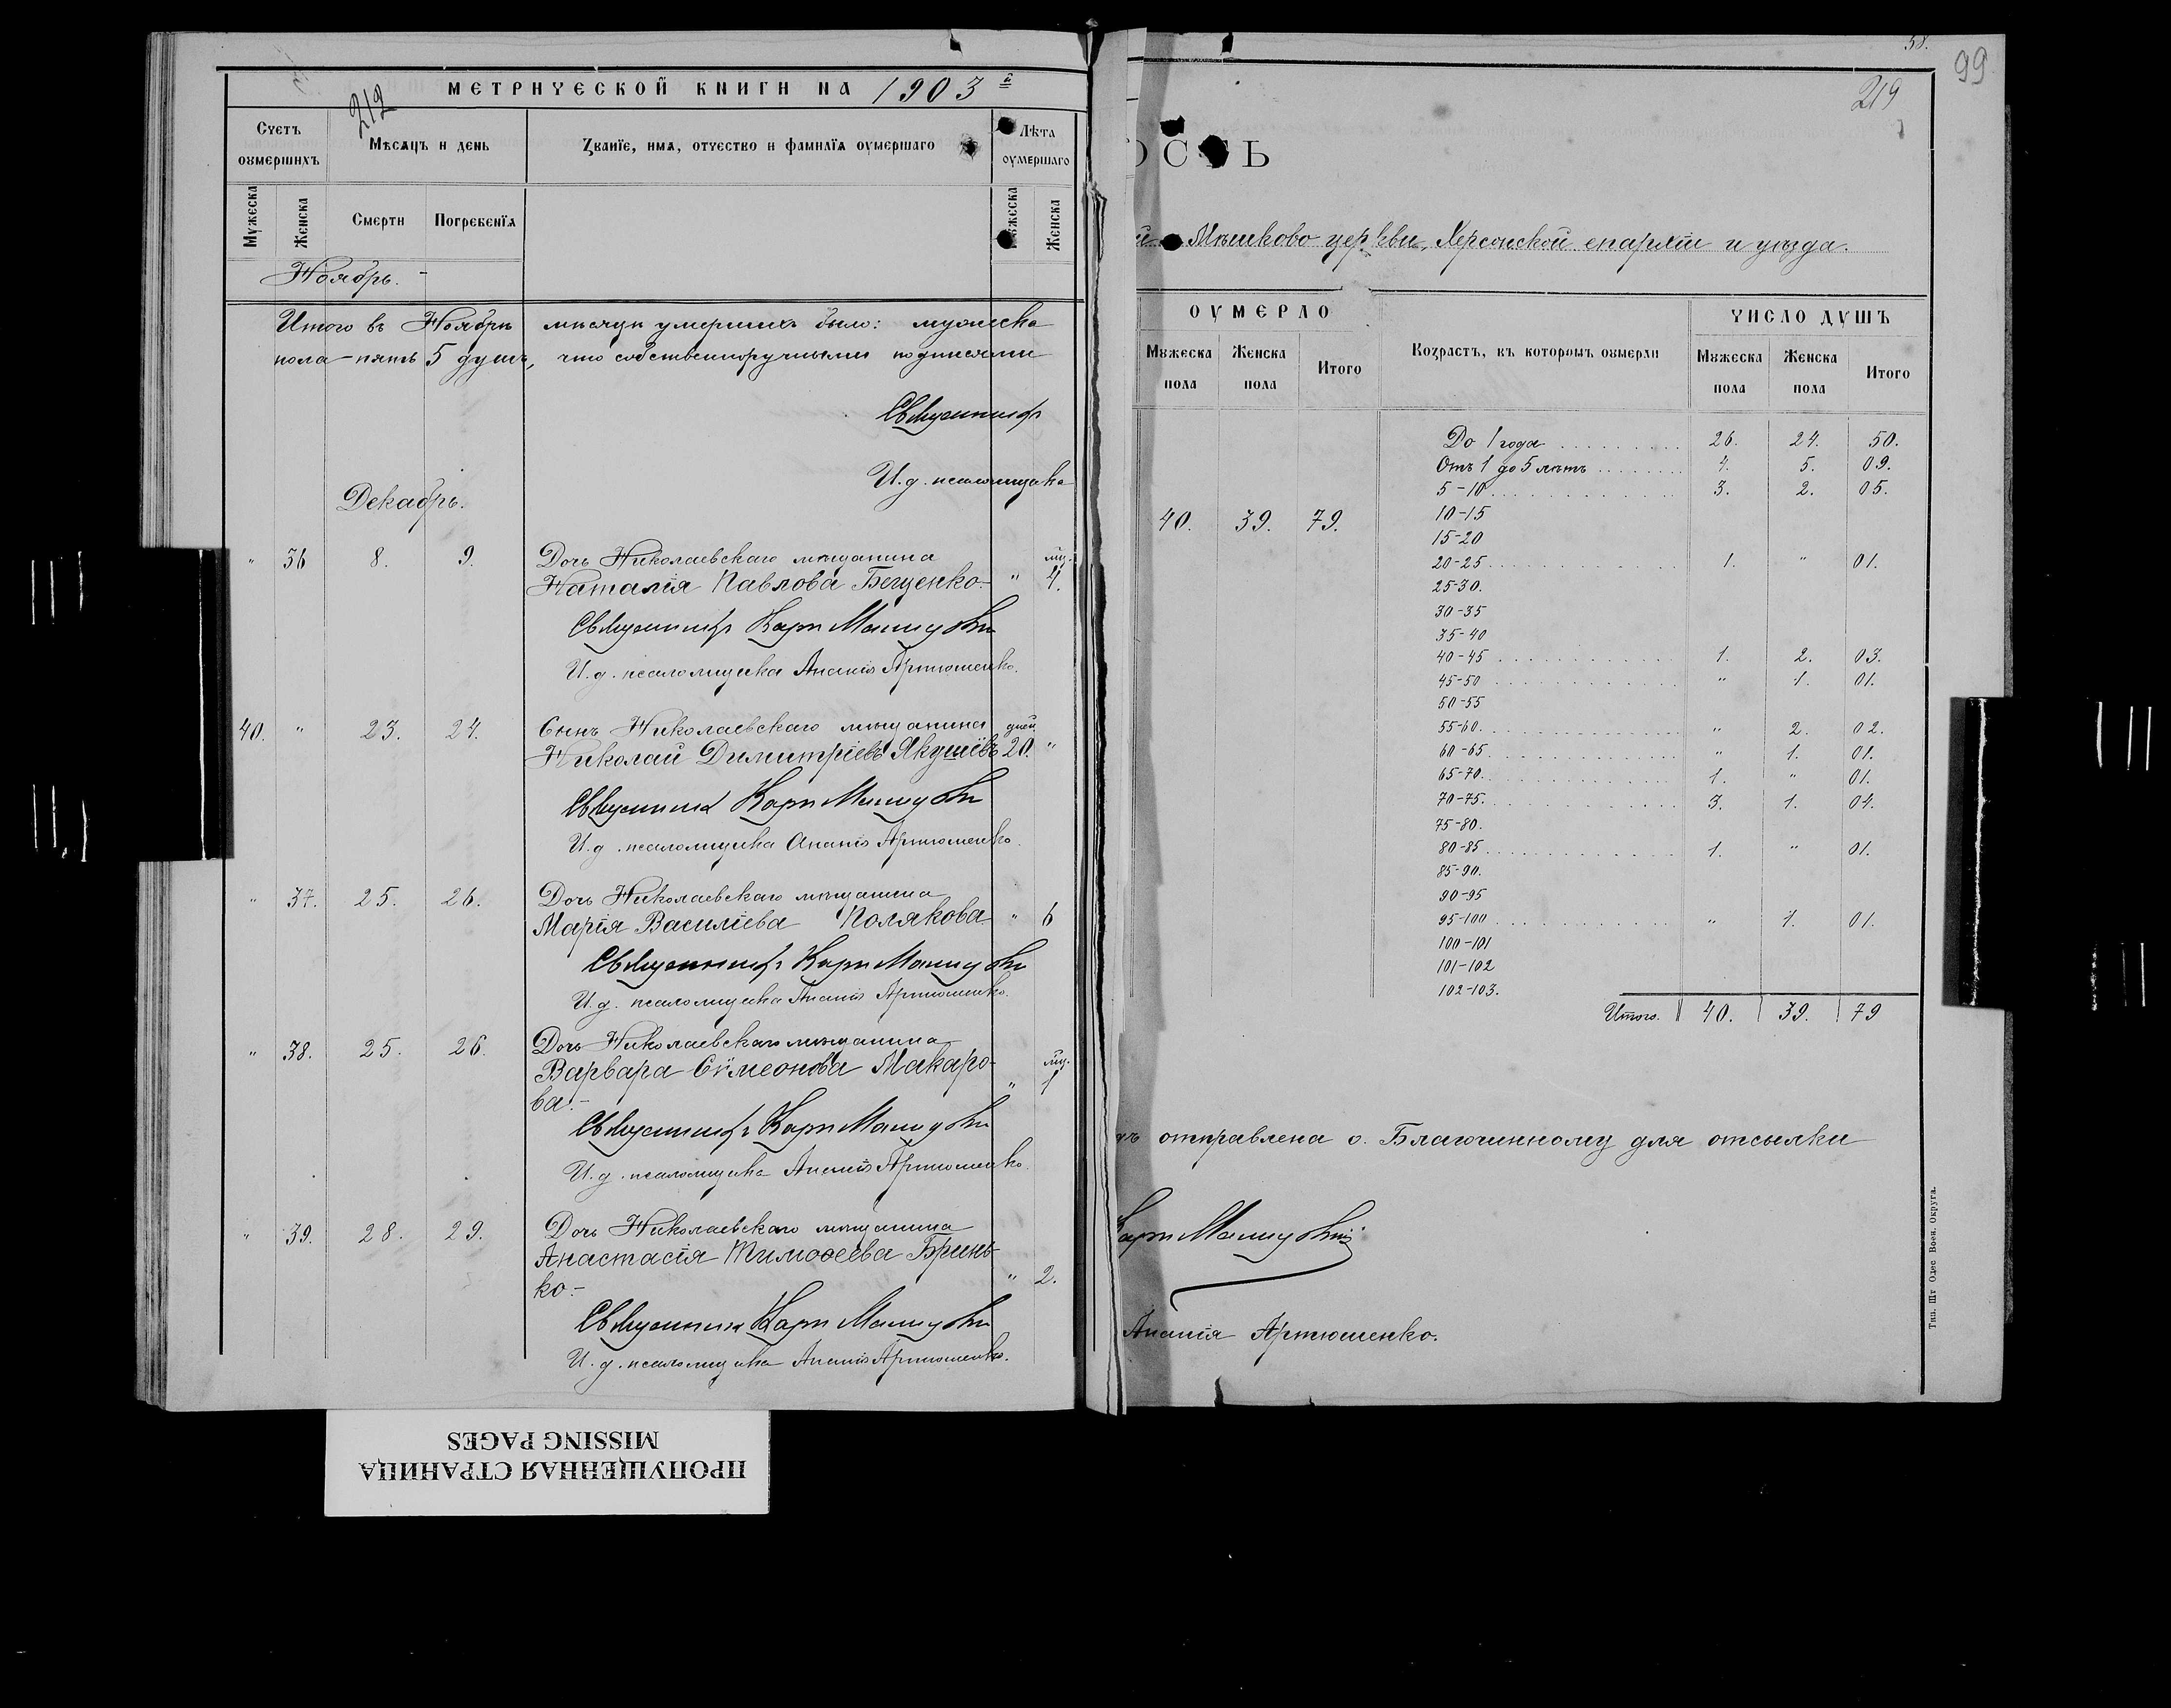 МЕТРИЧЕСКОЙ КНИГИ НА 1903 й
212
Счетъ оумершихъ
Мѣсяцъ и день
Званїе, имя, отчество и фамилїя оумершаго
Лѣта оумершаго
Мужеска
Женска
Смерти
Погребенїя
Мужеска
Женска
Ноябрь.
Итого въ Ноябрѣ мѣсяцѣ умершихъ было: мужеска
пола – пять 5 душъ, что собственноручными подписями
Священникъ
И. д. псаломщика
Декабрь.
" 36 8. 9. Дочь Николаевскаго мѣщанина мц.
Наталія Павлова Бегценко. " 4.
Священникъ Карп
И. д. псаломщика Ананія Артюшенко.
40. " 23. 24. Сынъ Николаевскаго мѣщанина дней
Николай Димитріевъ Якушевъ 20. "
Священникъ Карп
И. д. псаломщика Ананія Артюшенко.
" 37. 25. 26. Дочь Николаевскаго мѣщанина
Марія Василіева Полякова " 6
Священникъ Карп
И. д. псаломщика Ананія Артюшенко.
" 38. 25. 26. Дочь Николаевскаго мѣщанина
Варвара Сѵмеонова Макаро- мц.
ва. – " 1
Священникъ Карп
И. д. псаломщика Ананія Артюшенко.
" 39. 28. 29. Дочь Николаевскаго мѣщанина
Анастасія Тимоѳеева Бринь-
ко. – " 2.
Священникъ Карп
И. д. псаломщика Ананія Артюшенко.
ПРОПУЩЕННАЯ СТРАНИЦА
MISSING PAGES
58.
99
219
ОСТЬ
й Мѣшково церкви, Херсонской епархіи и уѣзда.
ОУМЕРЛО
Мужеска пола
Женска пола
Итого
Возрастъ, въ которомъ оумерли
ЧИСЛО ДУШЪ
Мужеска пола
Женска пола
Итого
40. 39. 79.
До 1 года 26. 24. 50.
Отъ 1 до 5 лѣтъ 4. 5. 09.
5-10 3. 2. 05.
10-15
15-20
20-25 1. " 01.
25-30.
30-35
35-40
40-45 1. 2. 03.
45-50 " 1. 01.
50-55
55-60. " 2. 02.
60-65 " 1. 01.
65-70. 1. " 01.
70-75. 3. 1. 04.
75-80.
80-85 1. " 01.
85-90.
90-95
95-100 " 1. 01.
100-101
101-102
102-103.
Итого. 40. 39. 79
отправлена о. Благочинному для отсылки
Карп
Ананія Артюшенко.
Тип. Шт Одес Воен. Округа.